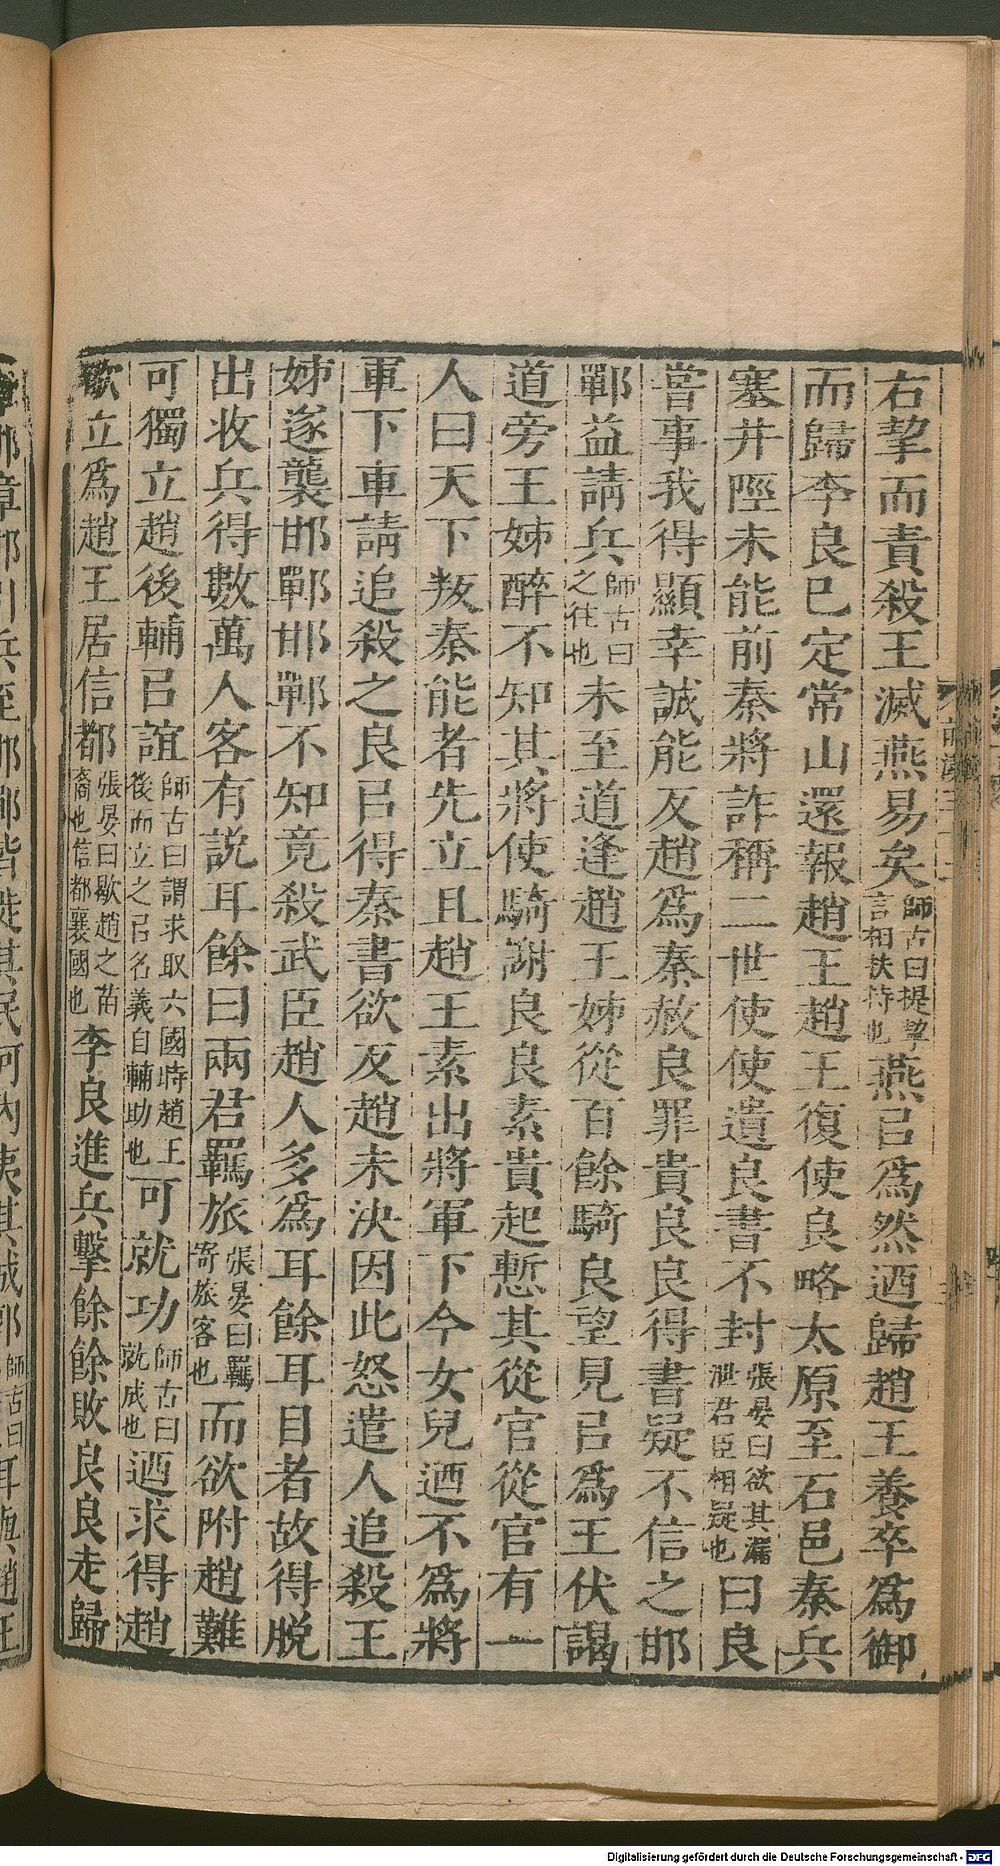 右挈而責殺王滅燕易矣師古曰提挈言相扶持也燕㠯爲然迺歸趙王養卒爲御
而歸李良已定常山還報趙王趙王復使良略太原至石邑秦兵
塞井陘未能前秦將詐稱二世使使遺良書不封張晏曰欲其漏泄君臣相疑也曰良
嘗事我得顯幸誠能反趙爲秦赦良罪貴良良得書疑不信之邯
鄲益請兵師古曰之往也未至道逢趙王姊從百餘騎良望見㠯爲王伏謁
道旁王姊醉不知其將使騎謝良良素貴起慙其從官從官有一
人曰天下叛秦能者先立且趙王素出將軍下今女兒迺不爲將
軍下車請追殺之良㠯得秦書欲反趙未決因此怒遣人追殺王
姊遂襲邯鄲邯鄲不知竟殺武臣趙人多爲耳餘耳目者故得脫
出收兵得數萬人客有說耳餘曰兩君羈旅張晏曰羈寄旅客也而欲附趙難
可獨立趙後輔㠯誼師古曰謂求取六國時趙王後而立之㠯名義自輔助也可就功師古曰就成也迺求得趙
歇立爲趙王居信都張晏曰歇趙之苗裔也信都襄國也李良進兵擊餘餘敗良良走歸
章邯章邯引兵至邯鄲皆徙其民河內夷其城郭師古曰耳與趙王
前漢三十二
Digitalisierung gefördert durch die Deutsche Forschungsgemeinschaft - DFG